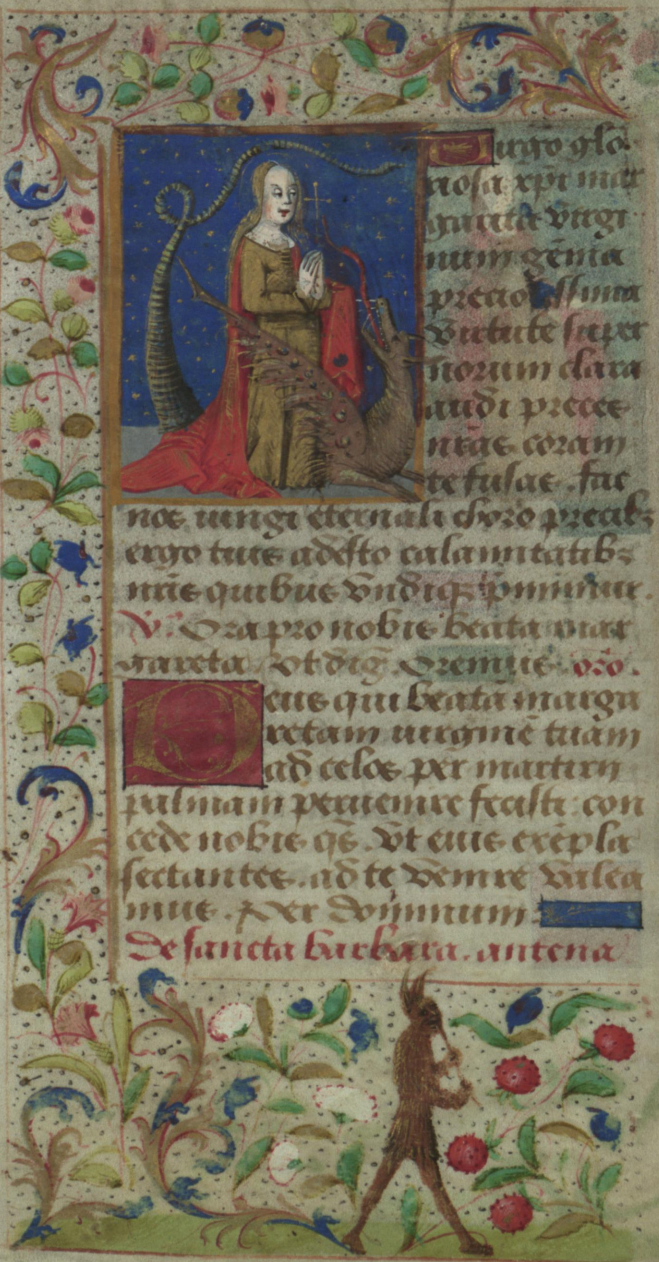 Virgo glo
riosa xpi mar
garita virgi
num gēma
preciosissima
virtute super
norum clara
audi preces
nr̄as coram
te fusas . fac
nos iungi eternali choro precibꝫ
ergo tuis adesto calamitatibꝫ
nr̄is quibus vndiqꝫ p̄mimur .
V̄. Ora pro nobis beata mar
gareta . Vt diḡ. Oremus . oro .
Deus qui beatā marga
retam uirginē tuam
ad celos per martirii
palmam peruenire fecisti : con
cede nobis qs̄ . vt eius exēpla
sectantes . ad te venire valea
mus . Per dominum .
De sancta barbara . antena